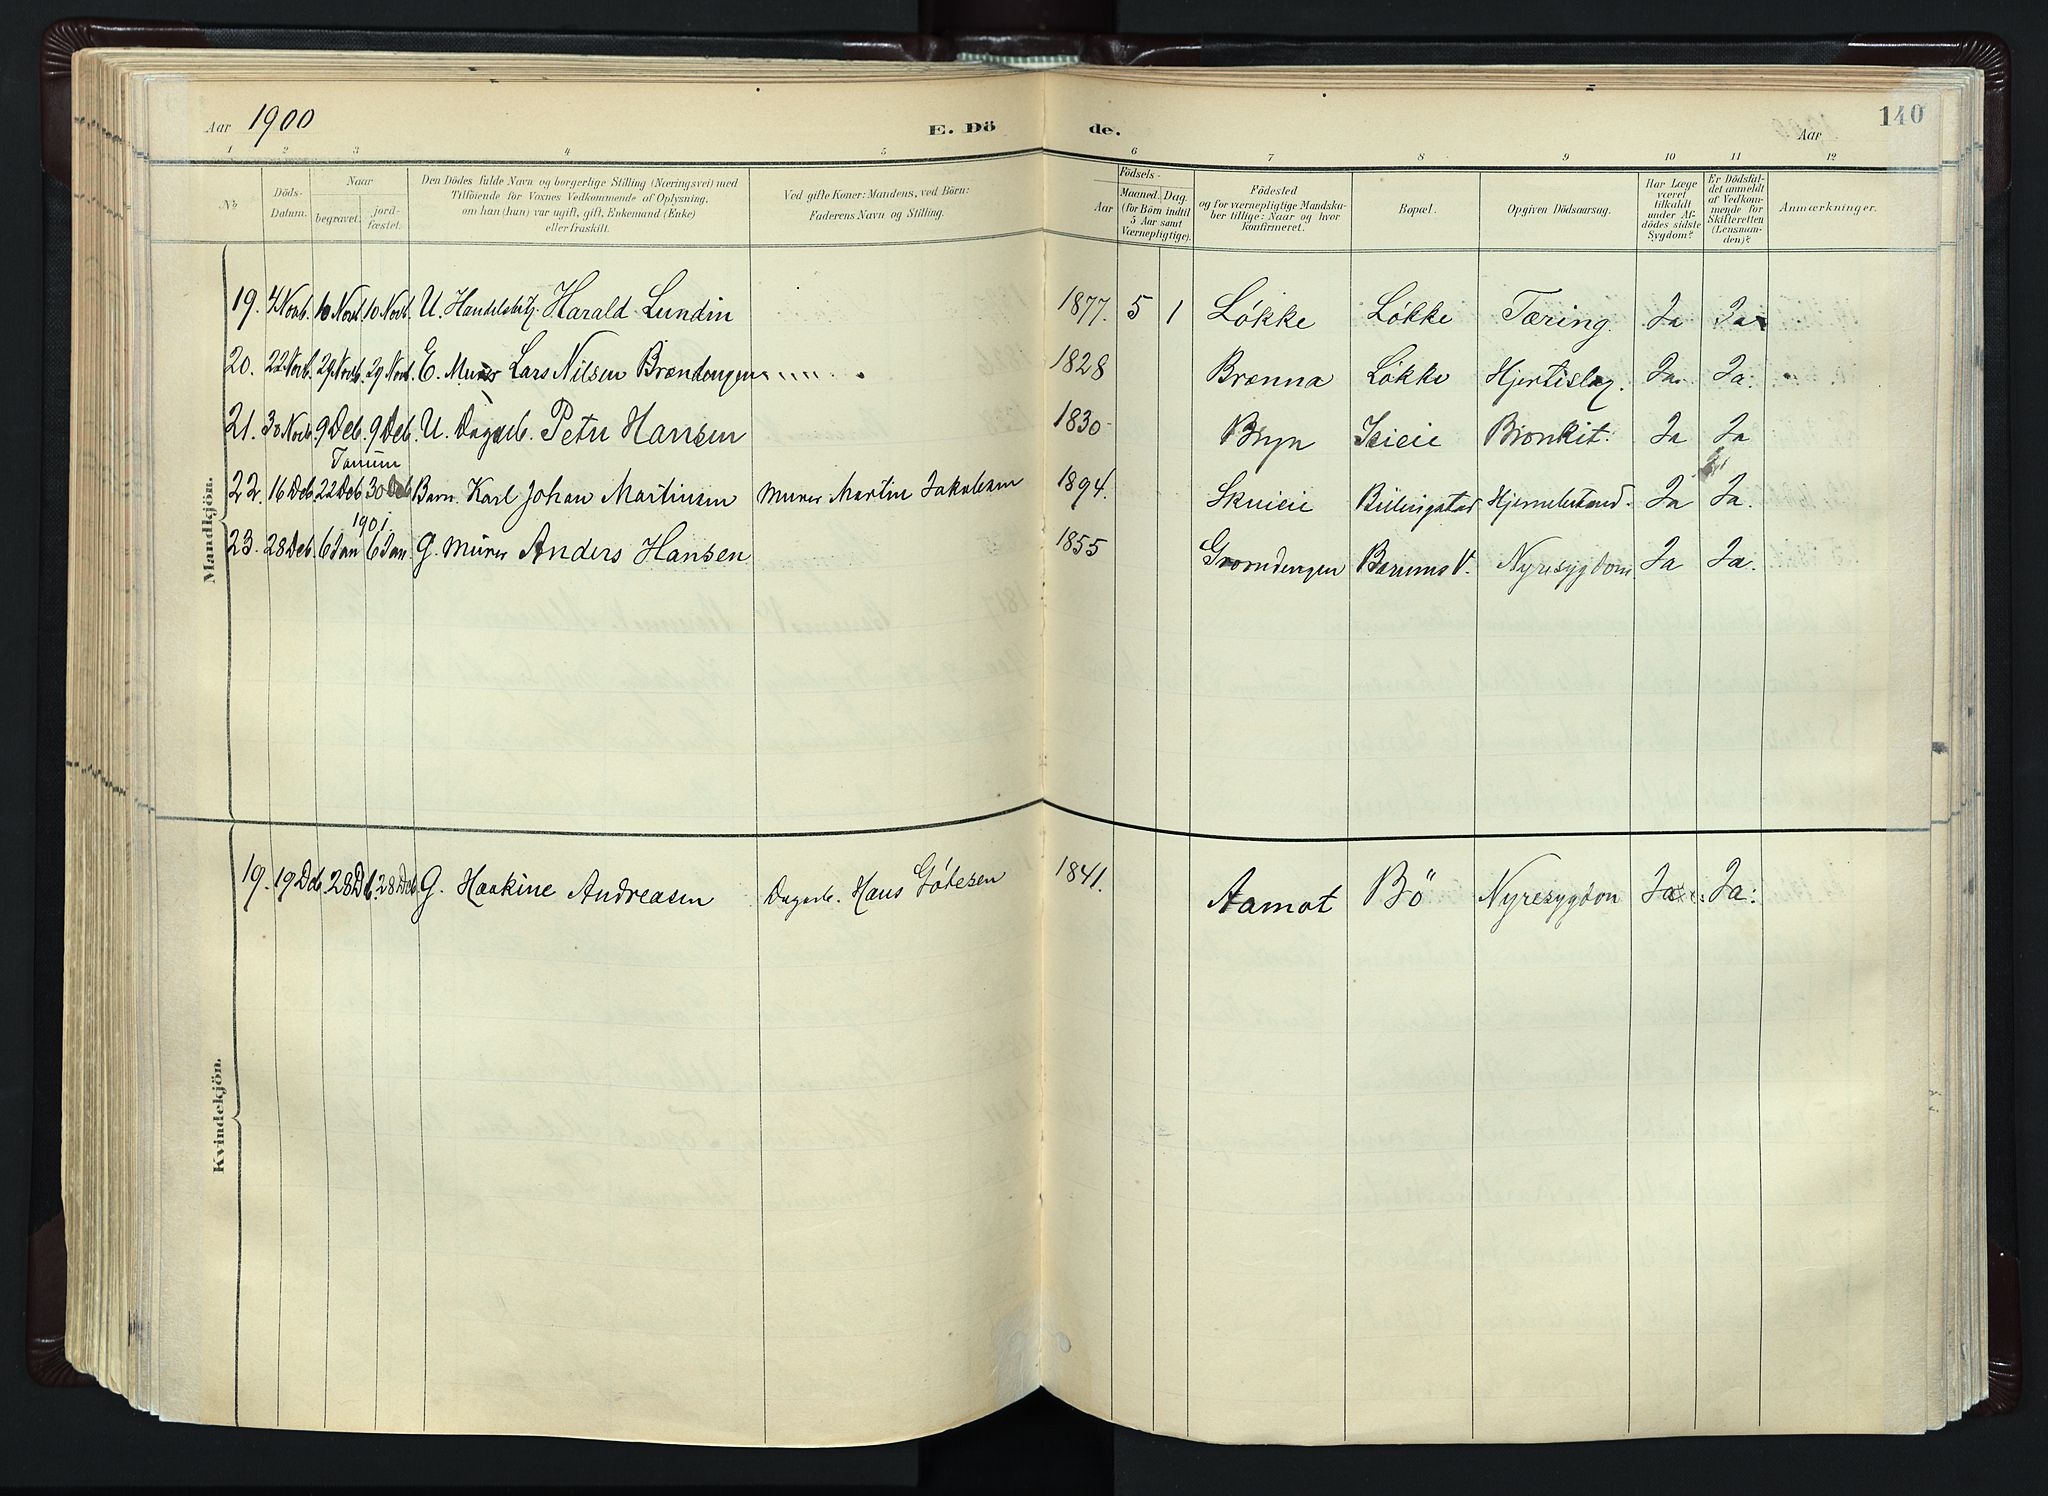 Aar 1900 E. Dö de. Aar 140
1 2 3 4 5 6 7 8 9 10 11 12
No Döds-Datum. Naar begravet. jord-fæstet. Den Dödes fulde Navn og borgerlige Stilling (Næringsvei) med Tilföiende for Voxnes Vedkommende af Oplysning, om han (hun) var ugift, gift, Enkemand (Enke) eller fraskilt. Ved gifte Koner: Mandens, ved Börn: Faderens Navn og Stilling. Födsels- Aar Maaned. Dag. (for Börn indtil 5 Aar samt Værnepligtige). Födested og for værnepligtige Mandskaber tillige: Naar og hvor konfirmeret. Bopæl. Opgiven Dödsaarsag. Har Læge været tilkaldt under Afdödes sidste Sygdom? Er Dödsfaldet anmeldt af Vedkommende for Skifteretten (Lensmanden)? Anmærkninger.
Mandkjön.
19. 4 Novb. 10 Novb. 10 Novb. U. Handelsbtj. Harald Lundin 1877. 5 1 Løkke Løkke Tæring Ja Ja
20. 22 Novb. 29 Novb. 29 Novb. E. Murer Lars Nilsen Brændengen 1828 Brænna Løkke Hjerteslag. Ja. Ja.
21. 30 Novb. 9 Deb. 9 Deb. U. Dagarb. Peter Hansen 1830 Bryn Bronkit. Ja Ja
Tanum
22. 16 Deb. 22 Deb. 30 Deb Barn. Karl Johan Martinsen Murer Martin Jakobsen 1894. Skuieie Billingstad Ja Ja.
1901.
23. 28 Deb. 6 Jan 6 Jan G. Murer Anders Hansen 1855 Bærums V. Nyresygdom Ja Ja.
Kvindekjön.
19. 19 Deb. 28 Db. 28 Deb. G. Haakine Andreasen Dagarb. Hans Gótesen 1841. Aamot Bö Nyresygdom Ja Ja.